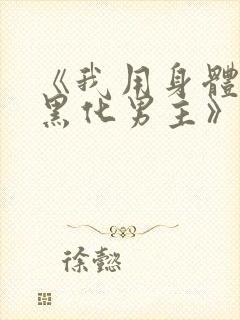 《我用身體
黑化男主》
徐懿